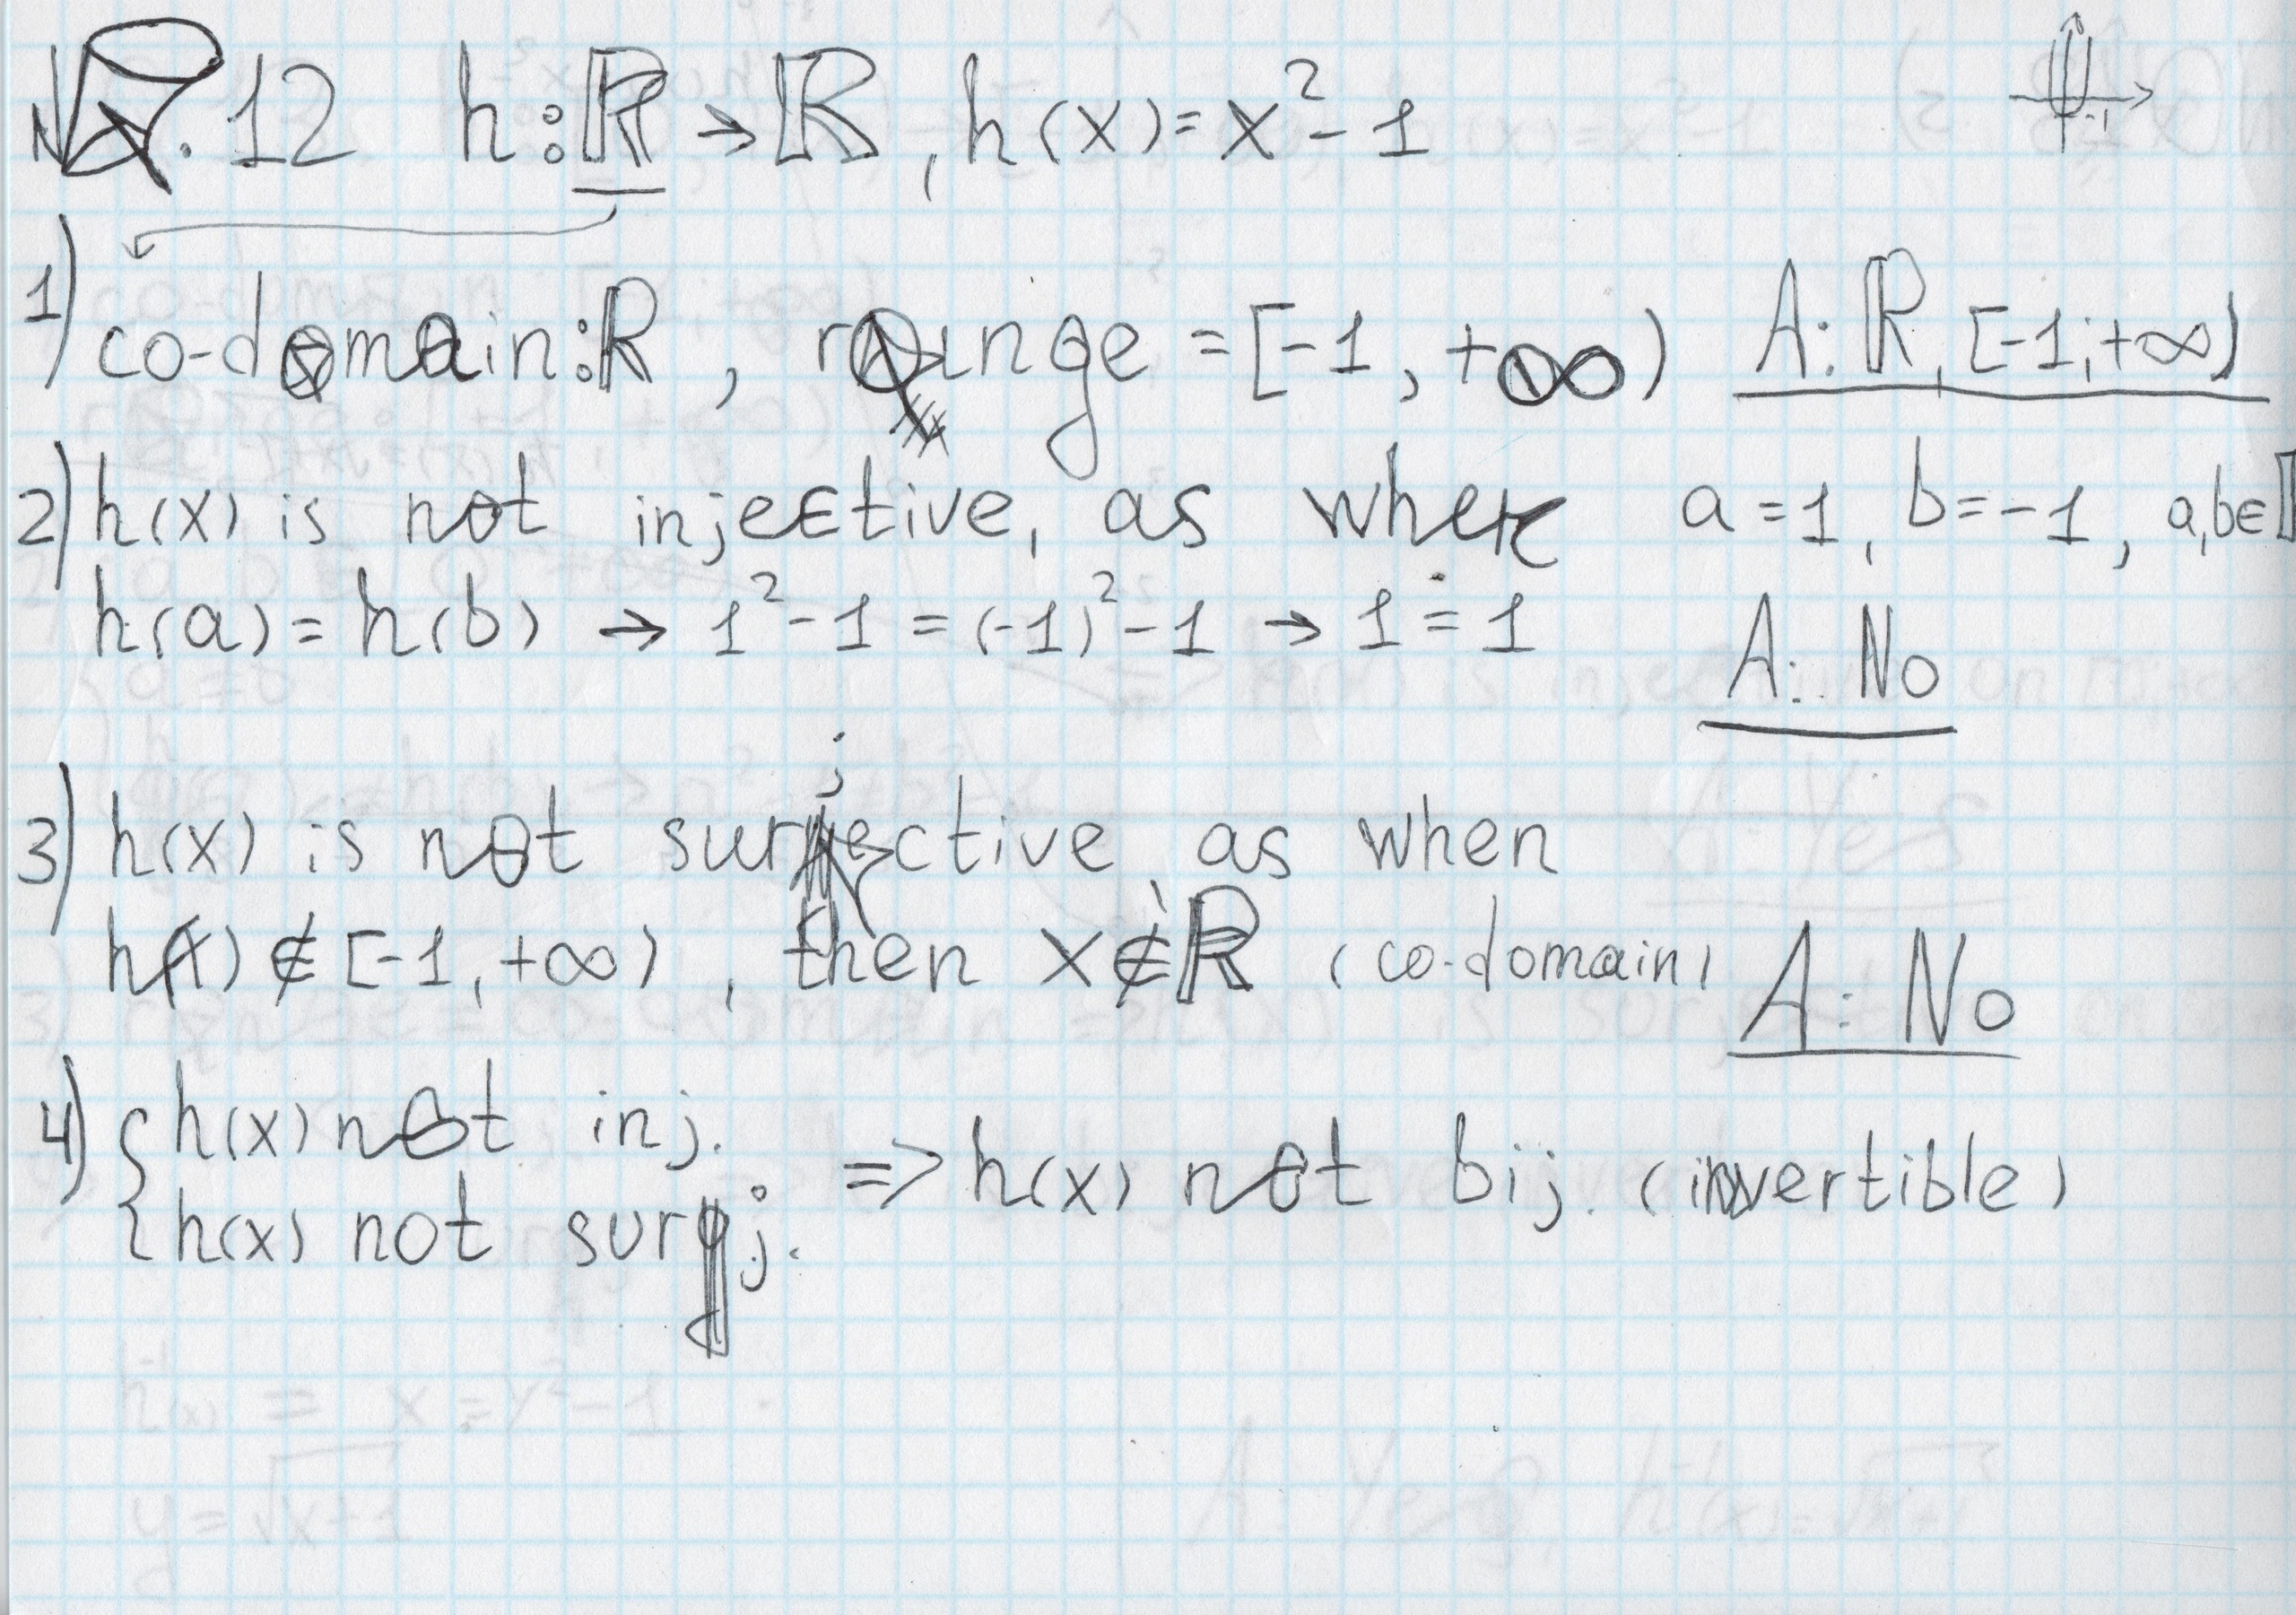 №.12 h:ℝ → ℝ, h(x)=x²-1
-1
1) co-domain:ℝ, range = [-1, +∞) A: ℝ, [-1;+∞)
2) h(x) is not injective, as when a=1, b=-1, a,b∈
h(a)=h(b) → 1²-1=(-1)²-1 → 1=1 A: No
3) h(x) is not surjective, as when
h(x)∉[-1,+∞), then x∉ℝ (co-domain) A: No
4) { h(x) not inj.
h(x) not surj. => h(x) not bij. (invertible)